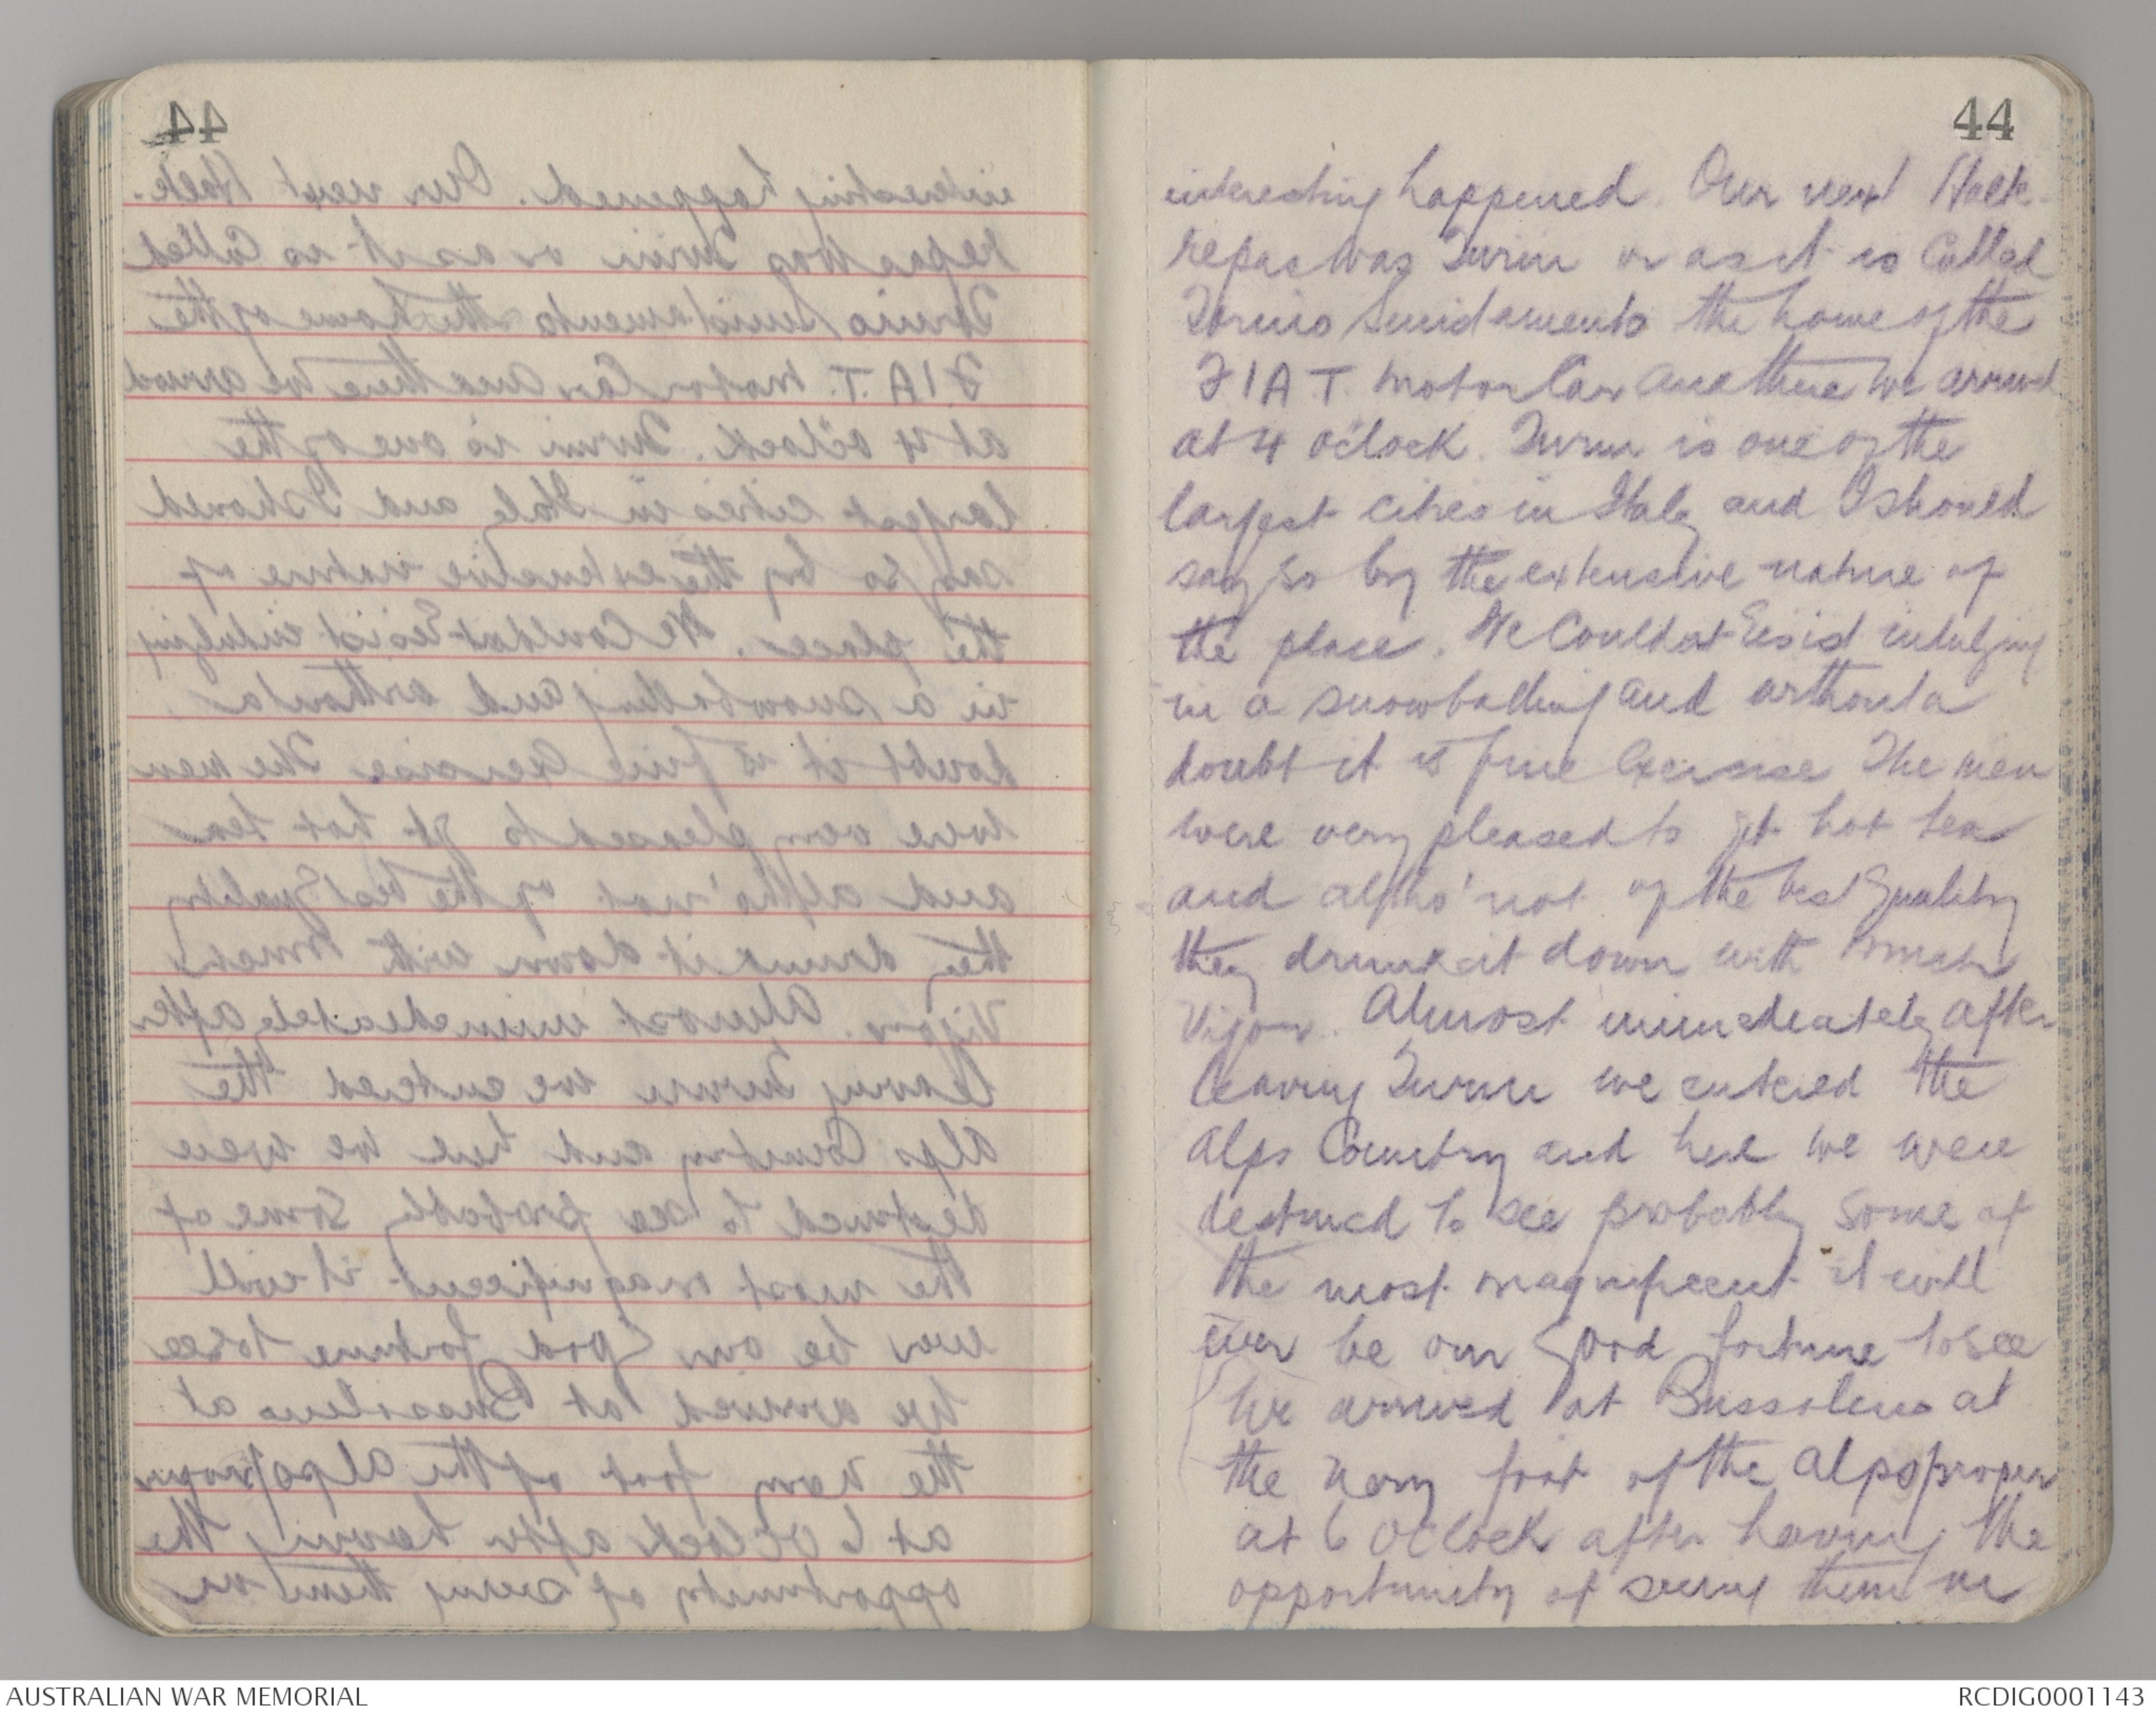 44
interesting happened. Our next Halte
repas was Turin or as it is Called
Torino Smistamento the home of the
F I A T. motor Car and there we arrived
at 4 o'clock. Turin is one of the
largest cities in Italy and I should
say so by the extensive nature of
the place. We Could not resist indulging
in a snowballing and without a
doubt it is fine Exercise The men
were very pleased to get hot tea
and altho' not of the best quality
they drunk it down with much
Vigour. Almost immediately after
leaving Turin we entered the
Alps Country and here we were
destined to see probably some of
the most magnificent it will
ever be our good fortune to see
We arrived at Bussoleno at
the very foot of the Alps proper
at 6 OClock after having the
opportunity of seeing them in
AUSTRALIAN WAR MEMORIAL
RCDIG0001143